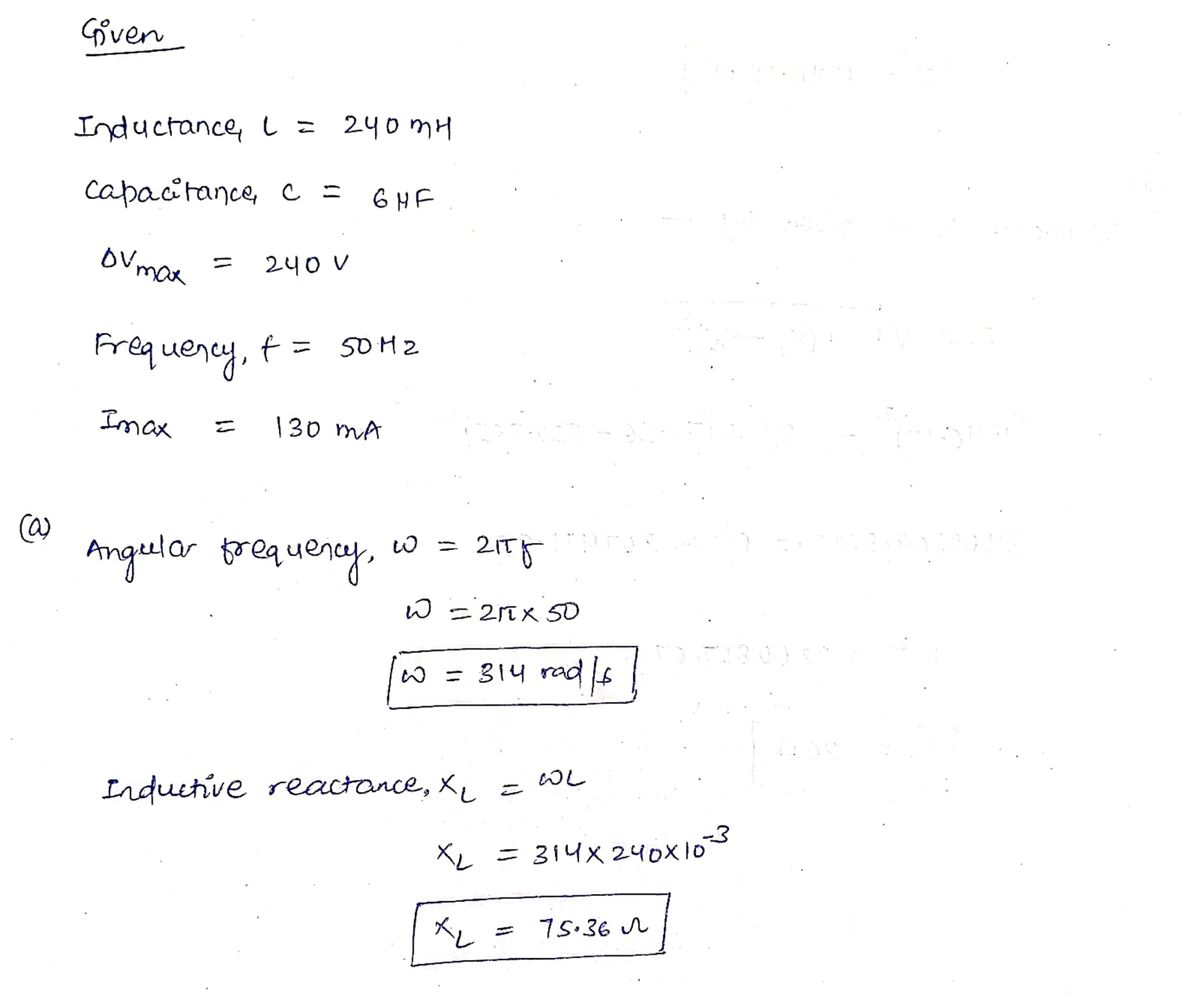 Given
Inductance, L = 240 mH
Capacitance, C = 6 μF
ΔVmax = 240 V
Frequency, f = 50 Hz
Imax = 130 mA
(a)
Angular frequency, ω = 2πf
ω = 2π × 50
ω = 314 rad/s
Inductive reactance, XL = ωL
XL = 314 × 240 × 10⁻³
XL = 75.36 Ω